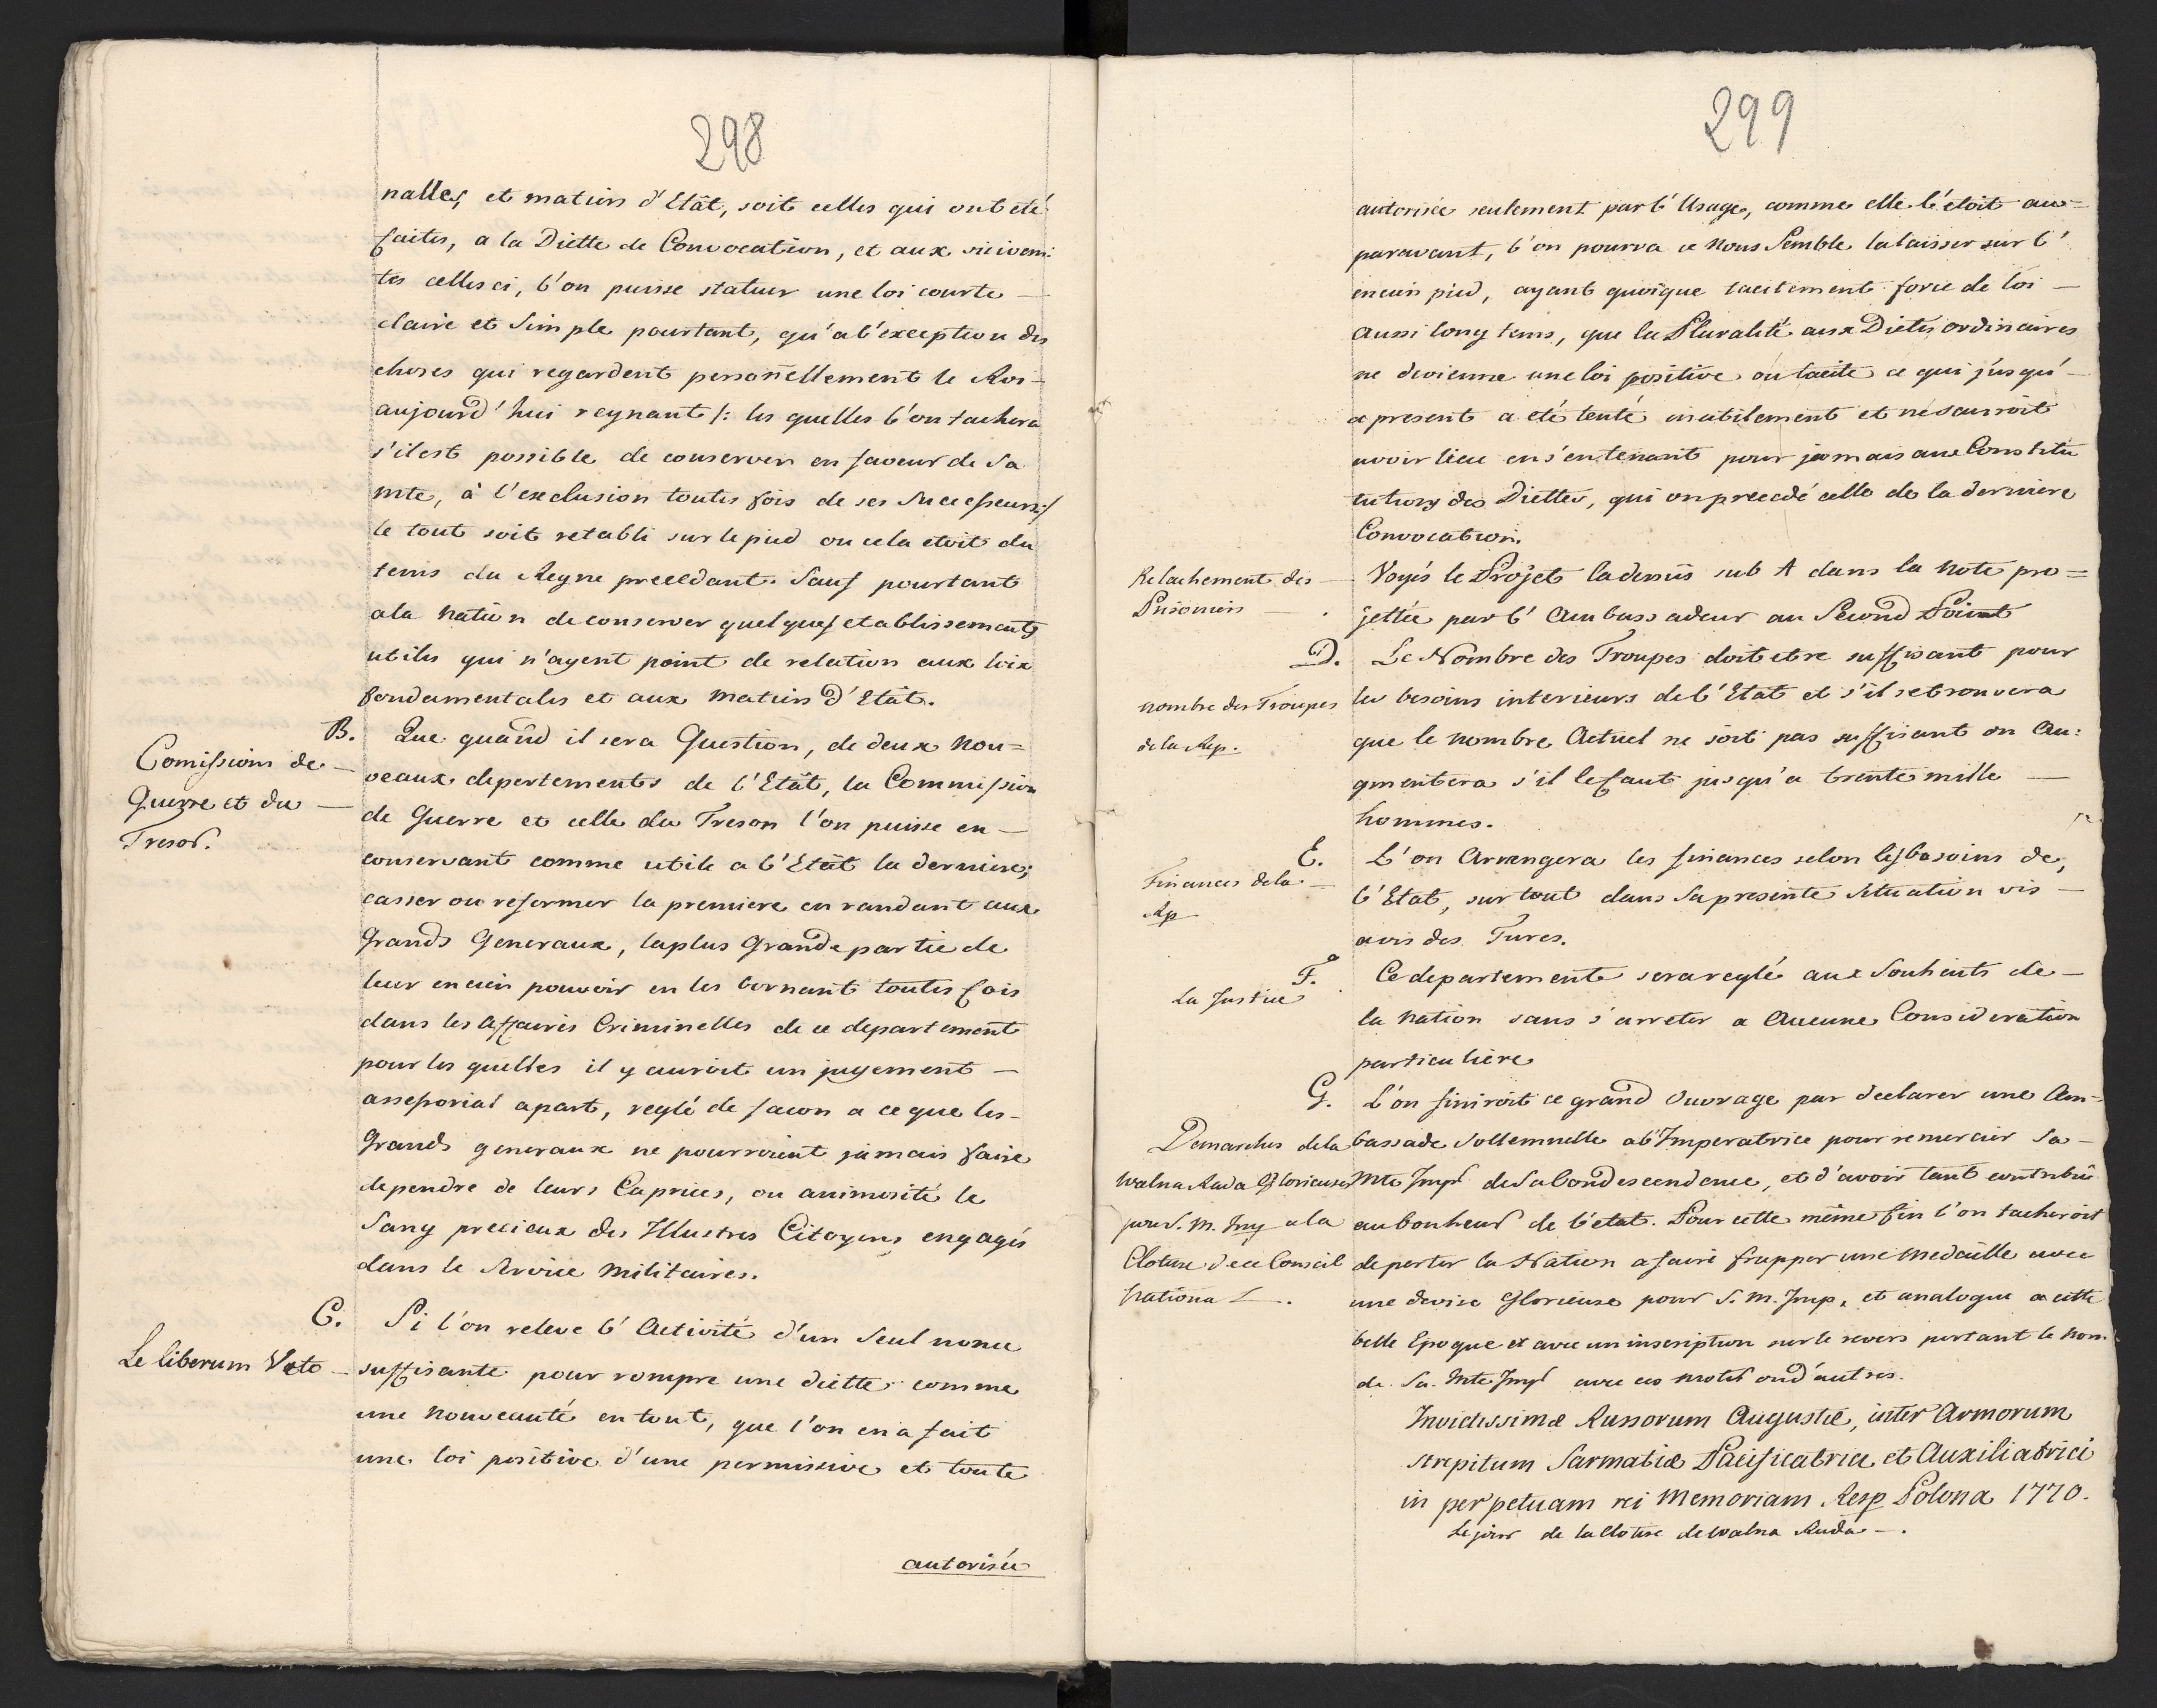 298
nalles, et matiers d'Etât, soit celles qui ont eté
faites, a la Diette de Convocation, et aux
tes celles ci, l'on puisse statuer une loi courte —
claire et Simple pourtant, qu'a l'exception des
choses qui regardent personellement le Roi —
aujourd'hui regnant /: les quelles l'on tachera
s'il est possible de conserver en faveur de Sa
mte, à l'exclusion toutes fois de ses Successeurs :/
le tout soit retabli sur le pied ou cela etoit du
tems du Regne precedant. Sauf pourtant
a la Nation de conserver quelques etablissements
utiles qui n'ayent point de relation aux loix
fondamentales et aux matiers d'Etât.
B.
Comissions de —
Guerre et du —
Tresor.
Que quand il sera Question, de deux nou=
veaux departements de l'Etât, la Commission
de Guerre et celle du Tresor l'on puisse en —
conservant comme utile a l'Etât la derniere;
casser ou reformer la premiere en randant aux
Grands Generaux, la plus Grande partie de
leur encien pouvoir en les bornant toutes fois
dans les Affaires Criminelles de ce departement
pour les quelles il y auroit un jugement —
assessorial apart, reglé de facon a ce que les —
Grands generaux ne pourroient jamais faire
dependre de leurs Caprices, ou animosité le
Sang precieux des Illustres Citoyens engagés
dans le Service Militaires.
C.
Le liberum Veto —
Si l'on releve l'Activité d'un Seul nonce
suffisante pour rompre une diette comme
une Nouveauté en tout, que l'on en a fait
une loi positive d'une permissive et toute
autorisée
299
autorisée seulement par l'Usage, comme elle l'étoit au=
paravant, l'on pourra ce nous Semble la laisser sur l'
encien pied, ayant quoique tacitement force de loi —
aussi long tems, que la Pluralité aux Dietes ordinaires
ne devienne une loi positive ou tacite ce qui jusqu'
a present a eté tenté inutilement et ne sauroit
avoir lieu en s'en tenant pour jamais aux Constitu
tutions des Diettes, qui on precedé celle de la derniere
Convocation.
Relachement des —
Prisoniers — .
Voyés le Projet la dessus sub A dans la Note pro=
jettée par l'Ambassadeur au Second Point
D.
nombre des Troupes
de la Rep.
Le Nombre des Troupes doit etre suffisant pour
les besoins interieurs de l'Etat et s'il se trouvera
que le nombre Actuel ne soit pas suffisant on Au=
gmentera s'il le faut jusqu'a trente mille —
hommes.
E.
Finances de la —
Rp
L'on Arrengera les finances selon les besoins de
l'Etat, sur tout dans Sa presente Situation vis —
a vis des Turcs.
F.
La Justice
Ce departement sera reglé aux Souhaits de —
la Nation sans s'arreter a Aucune Consideration
particuliere
G.
Demarches de la
Walna Rada Glorieuses
pour S. M. Imp a la
Cloture de ce Conseil
National — .
L'on finiroit ce grand Ouvrage par declarer une Am=
bassade Sollemnelle a l'Imperatrice pour remercier Sa —
Mte Imp de Sa Condescendence, et d'avoir tant contribué
au bonheur de l'état. Pour cette même fin l'on tacheroit
de porter la Nation a faire frapper une Medaille avec
une devise Glorieuse pour S. M. Imp. et analogue a cette
belle Epoque et avec un inscription sur le revers portant le nom
de Sa Mte Imp avec ces mots ou d'autres.
Invictissimæ Russorum Augustæ, inter Armorum
strepitum Sarmatiæ Pacificatrici, et Auxiliatrici
in perpetuam rei Memoriam Resp Polona 1770.
Le jour de la Cloture de Walna Rada — .